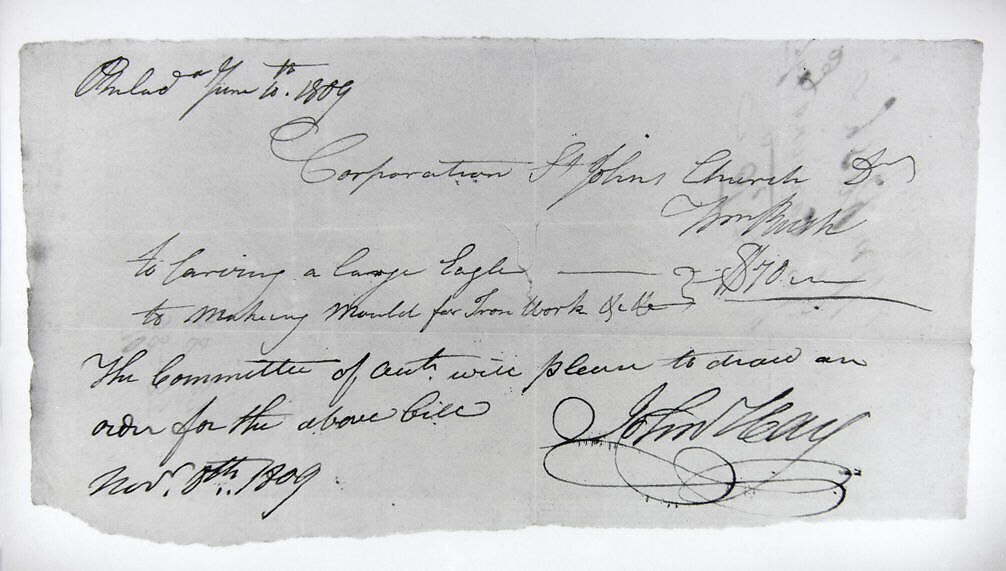 Philad.a June 10.th 1809
Corporation St Johns Church Dr
Wm Rush
to Carving a large Eagle — $70
to making mould for Iron Work &c &c
The Committee of Acct.s will please to draw an
order for the above bill
Nov.r 8th. 1809 John Hay